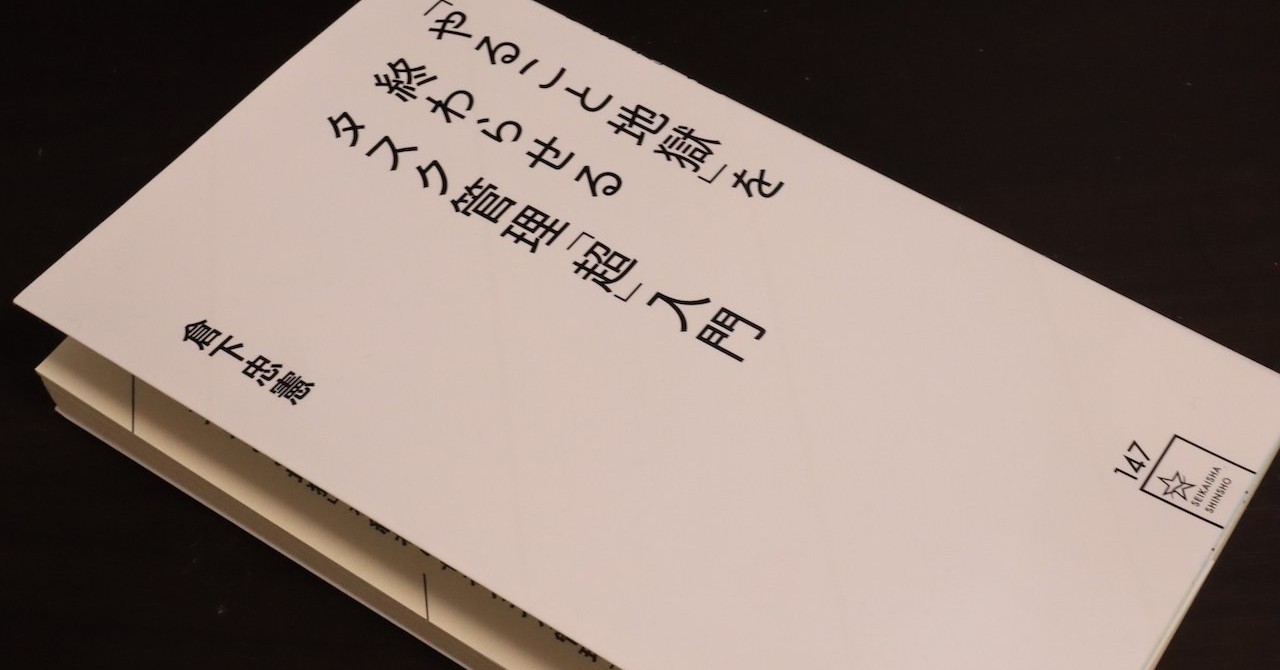 「やること地獄」を
終わらせる
タスク管理「超」入門
倉下忠憲
147
SEIKAISHA
SHINSHO